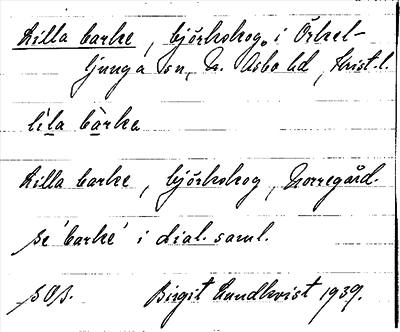 Lilla barke, björkskog, i Örkel-
ljunga sn, N. Åsbo hd, Krist. l.
líla bàrka
Lilla barke, björkskog, Norregård.
se 'barke' i dial. saml.
Birgit Lundkvist 1939.